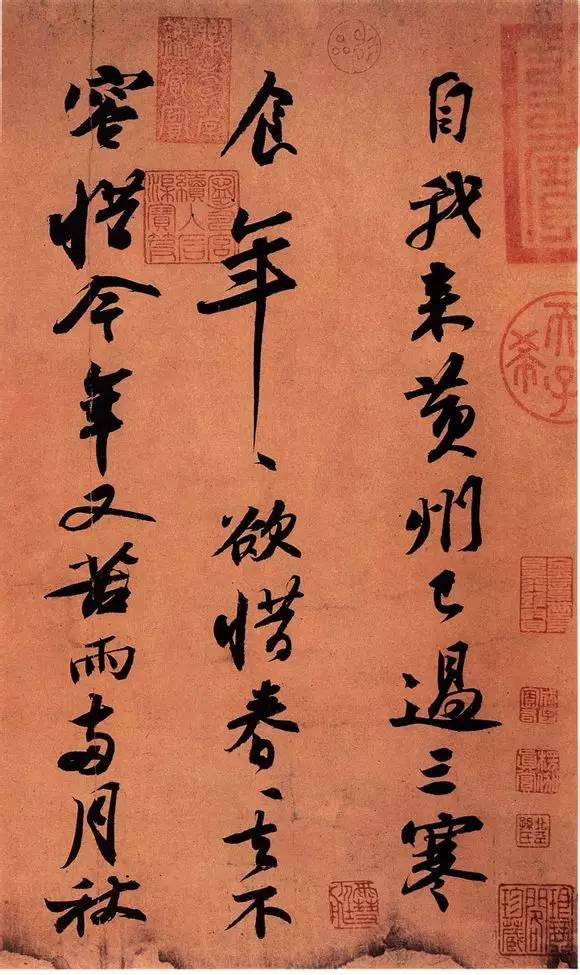 自我來黃州已過三寒
食年〻欲惜春〻去不
容惜今年又苦雨兩月秋
天子
希